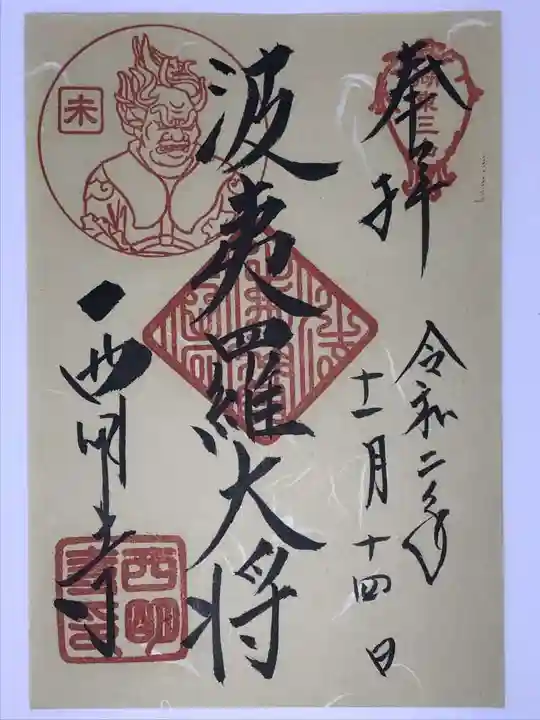 奉拝
令和二年
十一月十四日
波夷羅大将
未
西明寺
西明